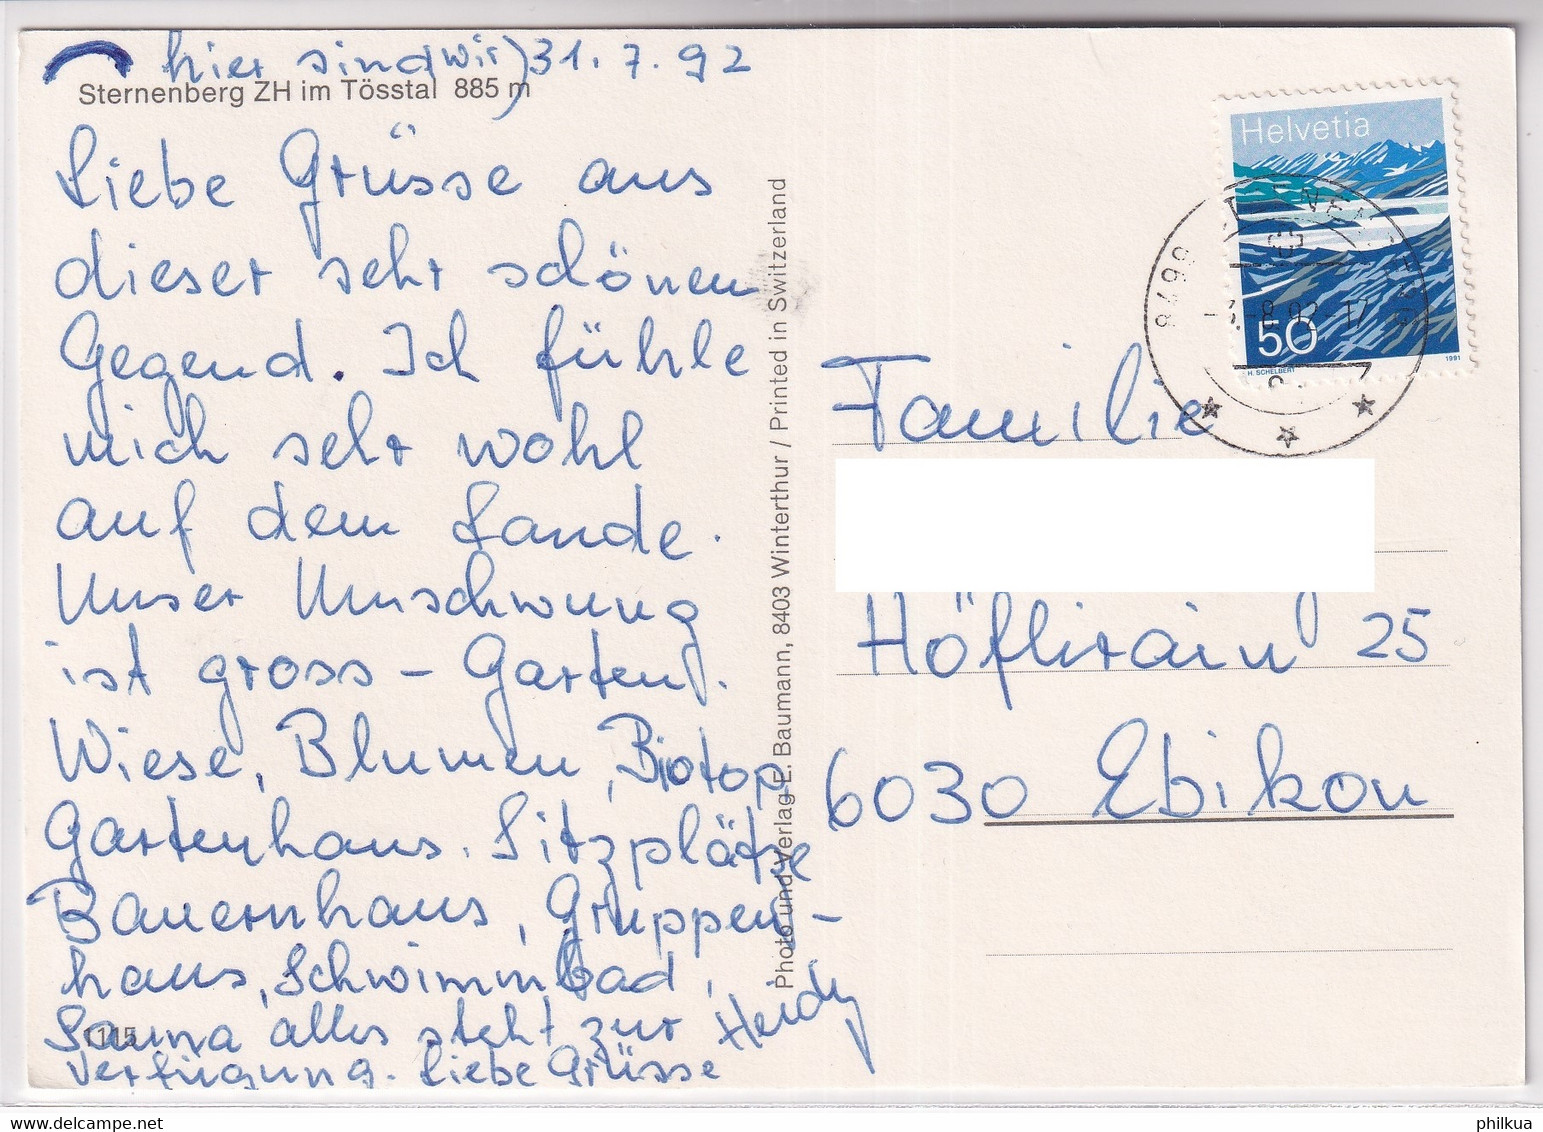 hier sind wir) 31.7.92
Sternenberg ZH im Tösstal 885 m
Liebe Grüsse aus
dieser sehr schönen
Gegend. Ich fühle
mich sehr wohl
auf dem Lande.
Unser Umschwung
ist gross - Garten,
Wiese, Blumen, Biotop
Gartenhaus. Sitzplätze
Bauernhaus, Gruppen-
haus, Schwimmbad,
Sauna alles steht zur
Verfügung. Liebe Grüsse
Heidy
1115
Photo und Verlag E. Baumann, 8403 Winterthur / Printed in Switzerland
Helvetia
50
H. SCHELBERT
1991
8499
Familie
Höflirain 25
6030 Ebikon
philkua
www.delcampe.net